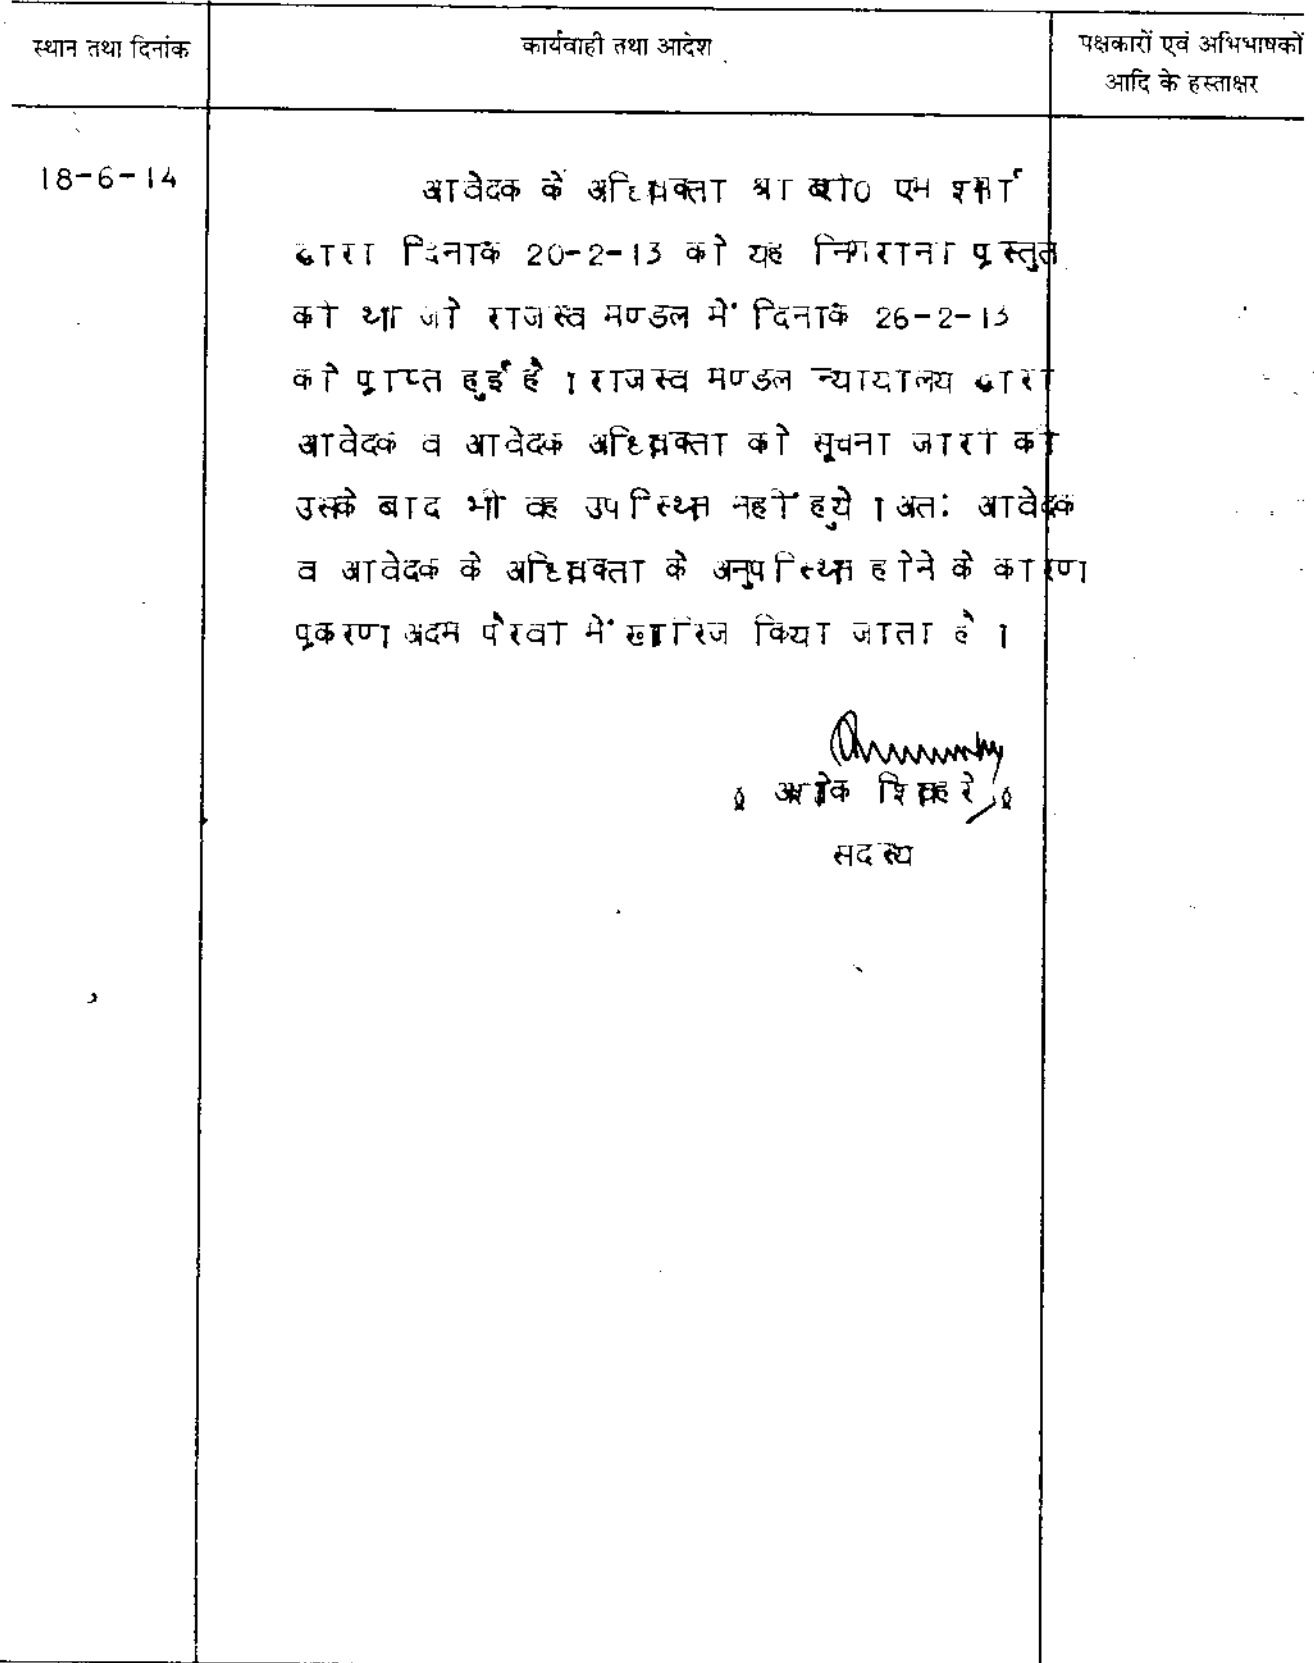 स्थान तथा दिनांक
कार्यवाही तथा आदेश
पक्षकारों एवं अभिभाषकों
आदि के हस्ताक्षर
18-6-14
आवेदक के अधिवक्ता श्री एम शर्मा
द्वारा दिनांक 20-2-13 को यह निगरानी प्रस्तुत
की थी जो राजस्व मण्डल में दिनांक 26-2-13
को प्राप्त हुई है । राजस्व मण्डल न्यायालय द्वारा
आवेदक व आवेदक अधिवक्ता को सूचना जारी की
उसके बाद भी वह उपस्थित नहीं हुये । अतः आवेदक
व आवेदक के अधिवक्ता के अनुपस्थित होने के कारण
प्रकरण अदम पैरवी में खारिज किया जाता है ।
अशोक शिवहरे
सदस्य